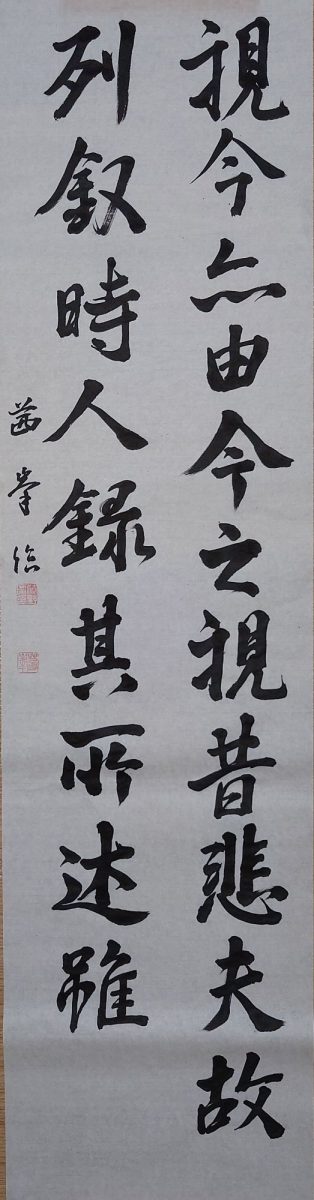 視今亦由今之視昔悲夫故
列叙時人録其所述雖
臨